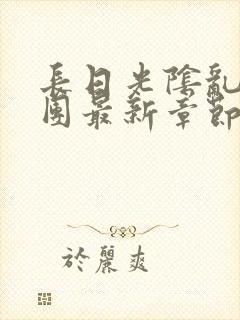 長日光陰亂
團最新章節
於麗爽